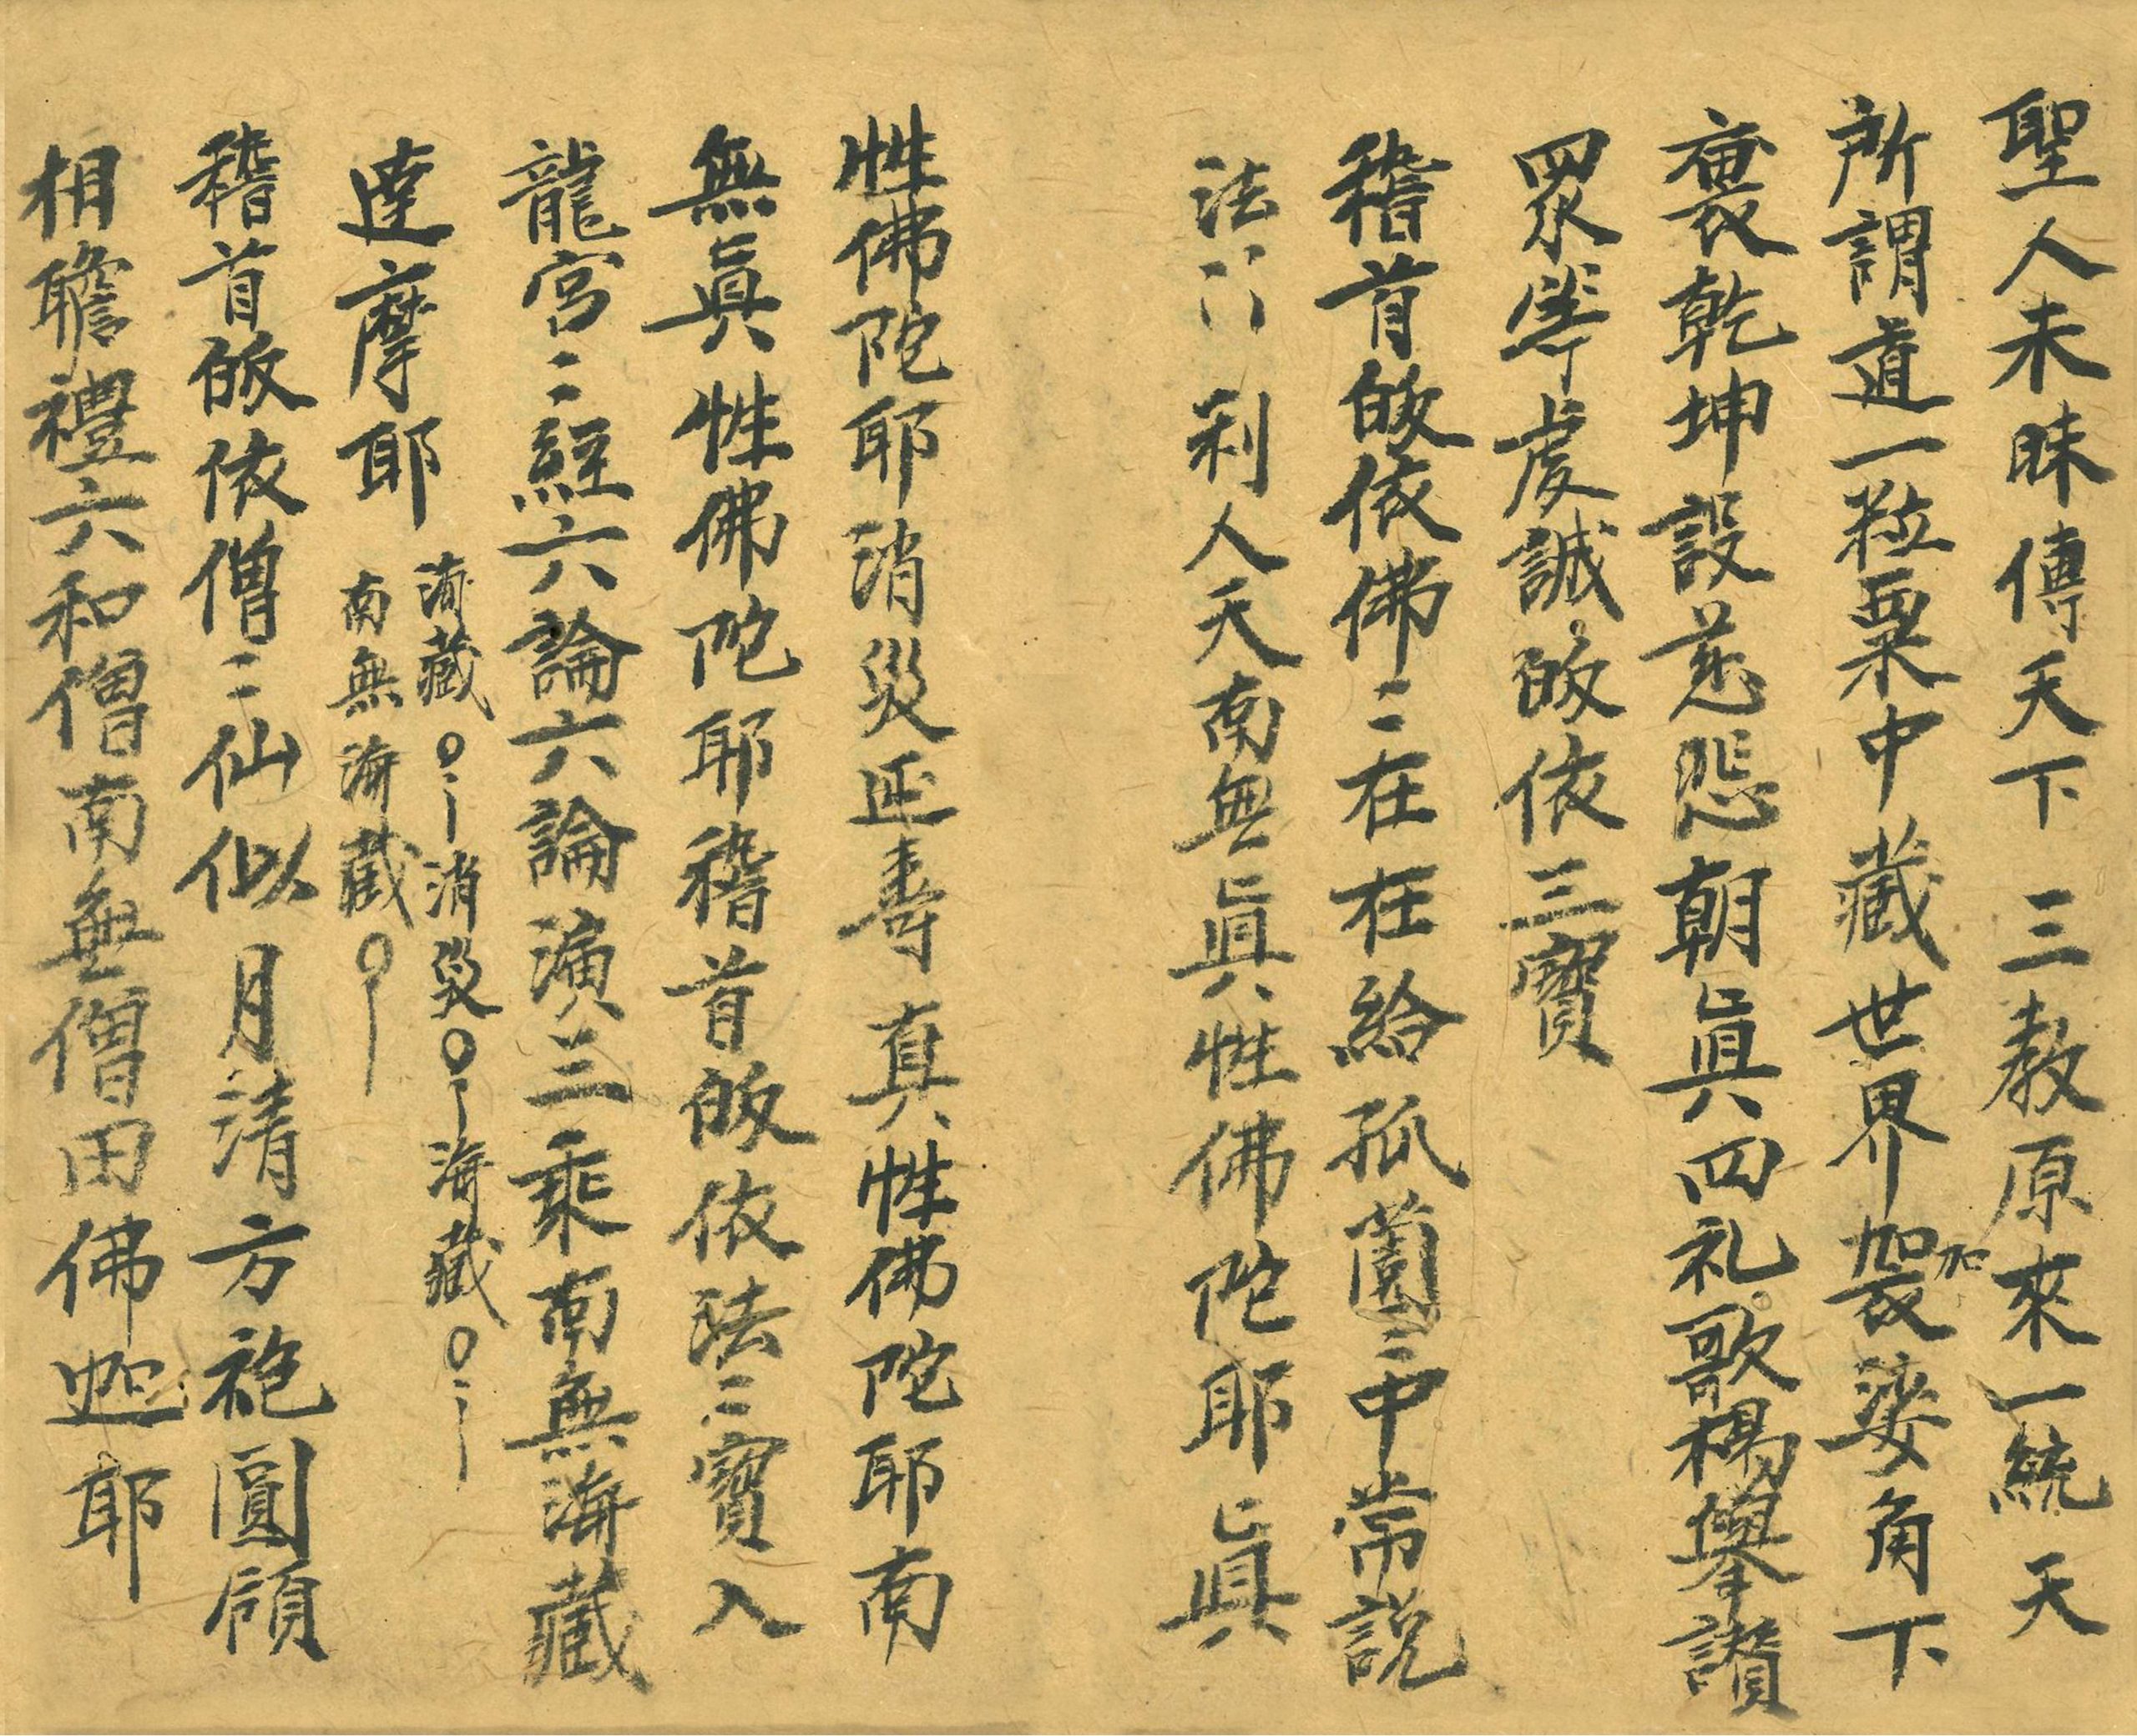 聖人未昧傳天下三教原來一統天
所謂道一粒粟中藏世界袈加裟角下
裹乾坤設慈悲朝眞四礼歌揚舉讃
眾等虔誠皈依三寶
稽首皈依佛〻在在給孤薗〻中常説
法門〻利人天南無眞性佛陀耶眞
性佛陀耶消災延壽真性佛陀耶南
無眞性佛陀耶稽首皈依法〻寶入
龍宮〻經六論六論演三乘南無海藏
達摩耶
海藏〇〻消災〇〻海藏〇〻
南無海藏〇
稽首皈依僧〻仙似月清方袍圓領
相瞻禮六和僧南無僧田佛迦耶